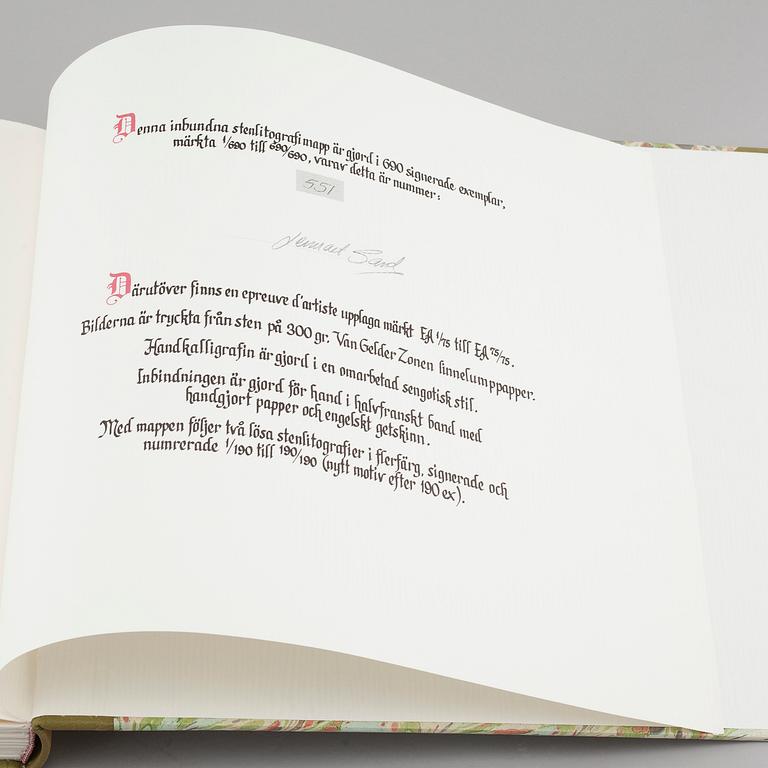 Denna inbundna stenlitografimapp är gjord i 690 signerade exemplar,
märkta 1/690 till 690/690, varav detta är nummer:
551
Lennart Sand
Därutöver finns en epreuve d'artiste upplaga märkt EA 1/75 till EA 75/75.
Bilderna är tryckta från sten på 300 gr. Van Gelder Zonen linnelumppapper.
Handkalligrafin är gjord i en omarbetad sengotisk stil.
Inbindningen är gjord för hand i halvfranskt band med
handgjort papper och engelskt getskinn.
Med mappen följer två lösa stenlitografier i flerfärg, signerade och
numrerade 1/190 till 190/190 (nytt motiv efter 190 ex).